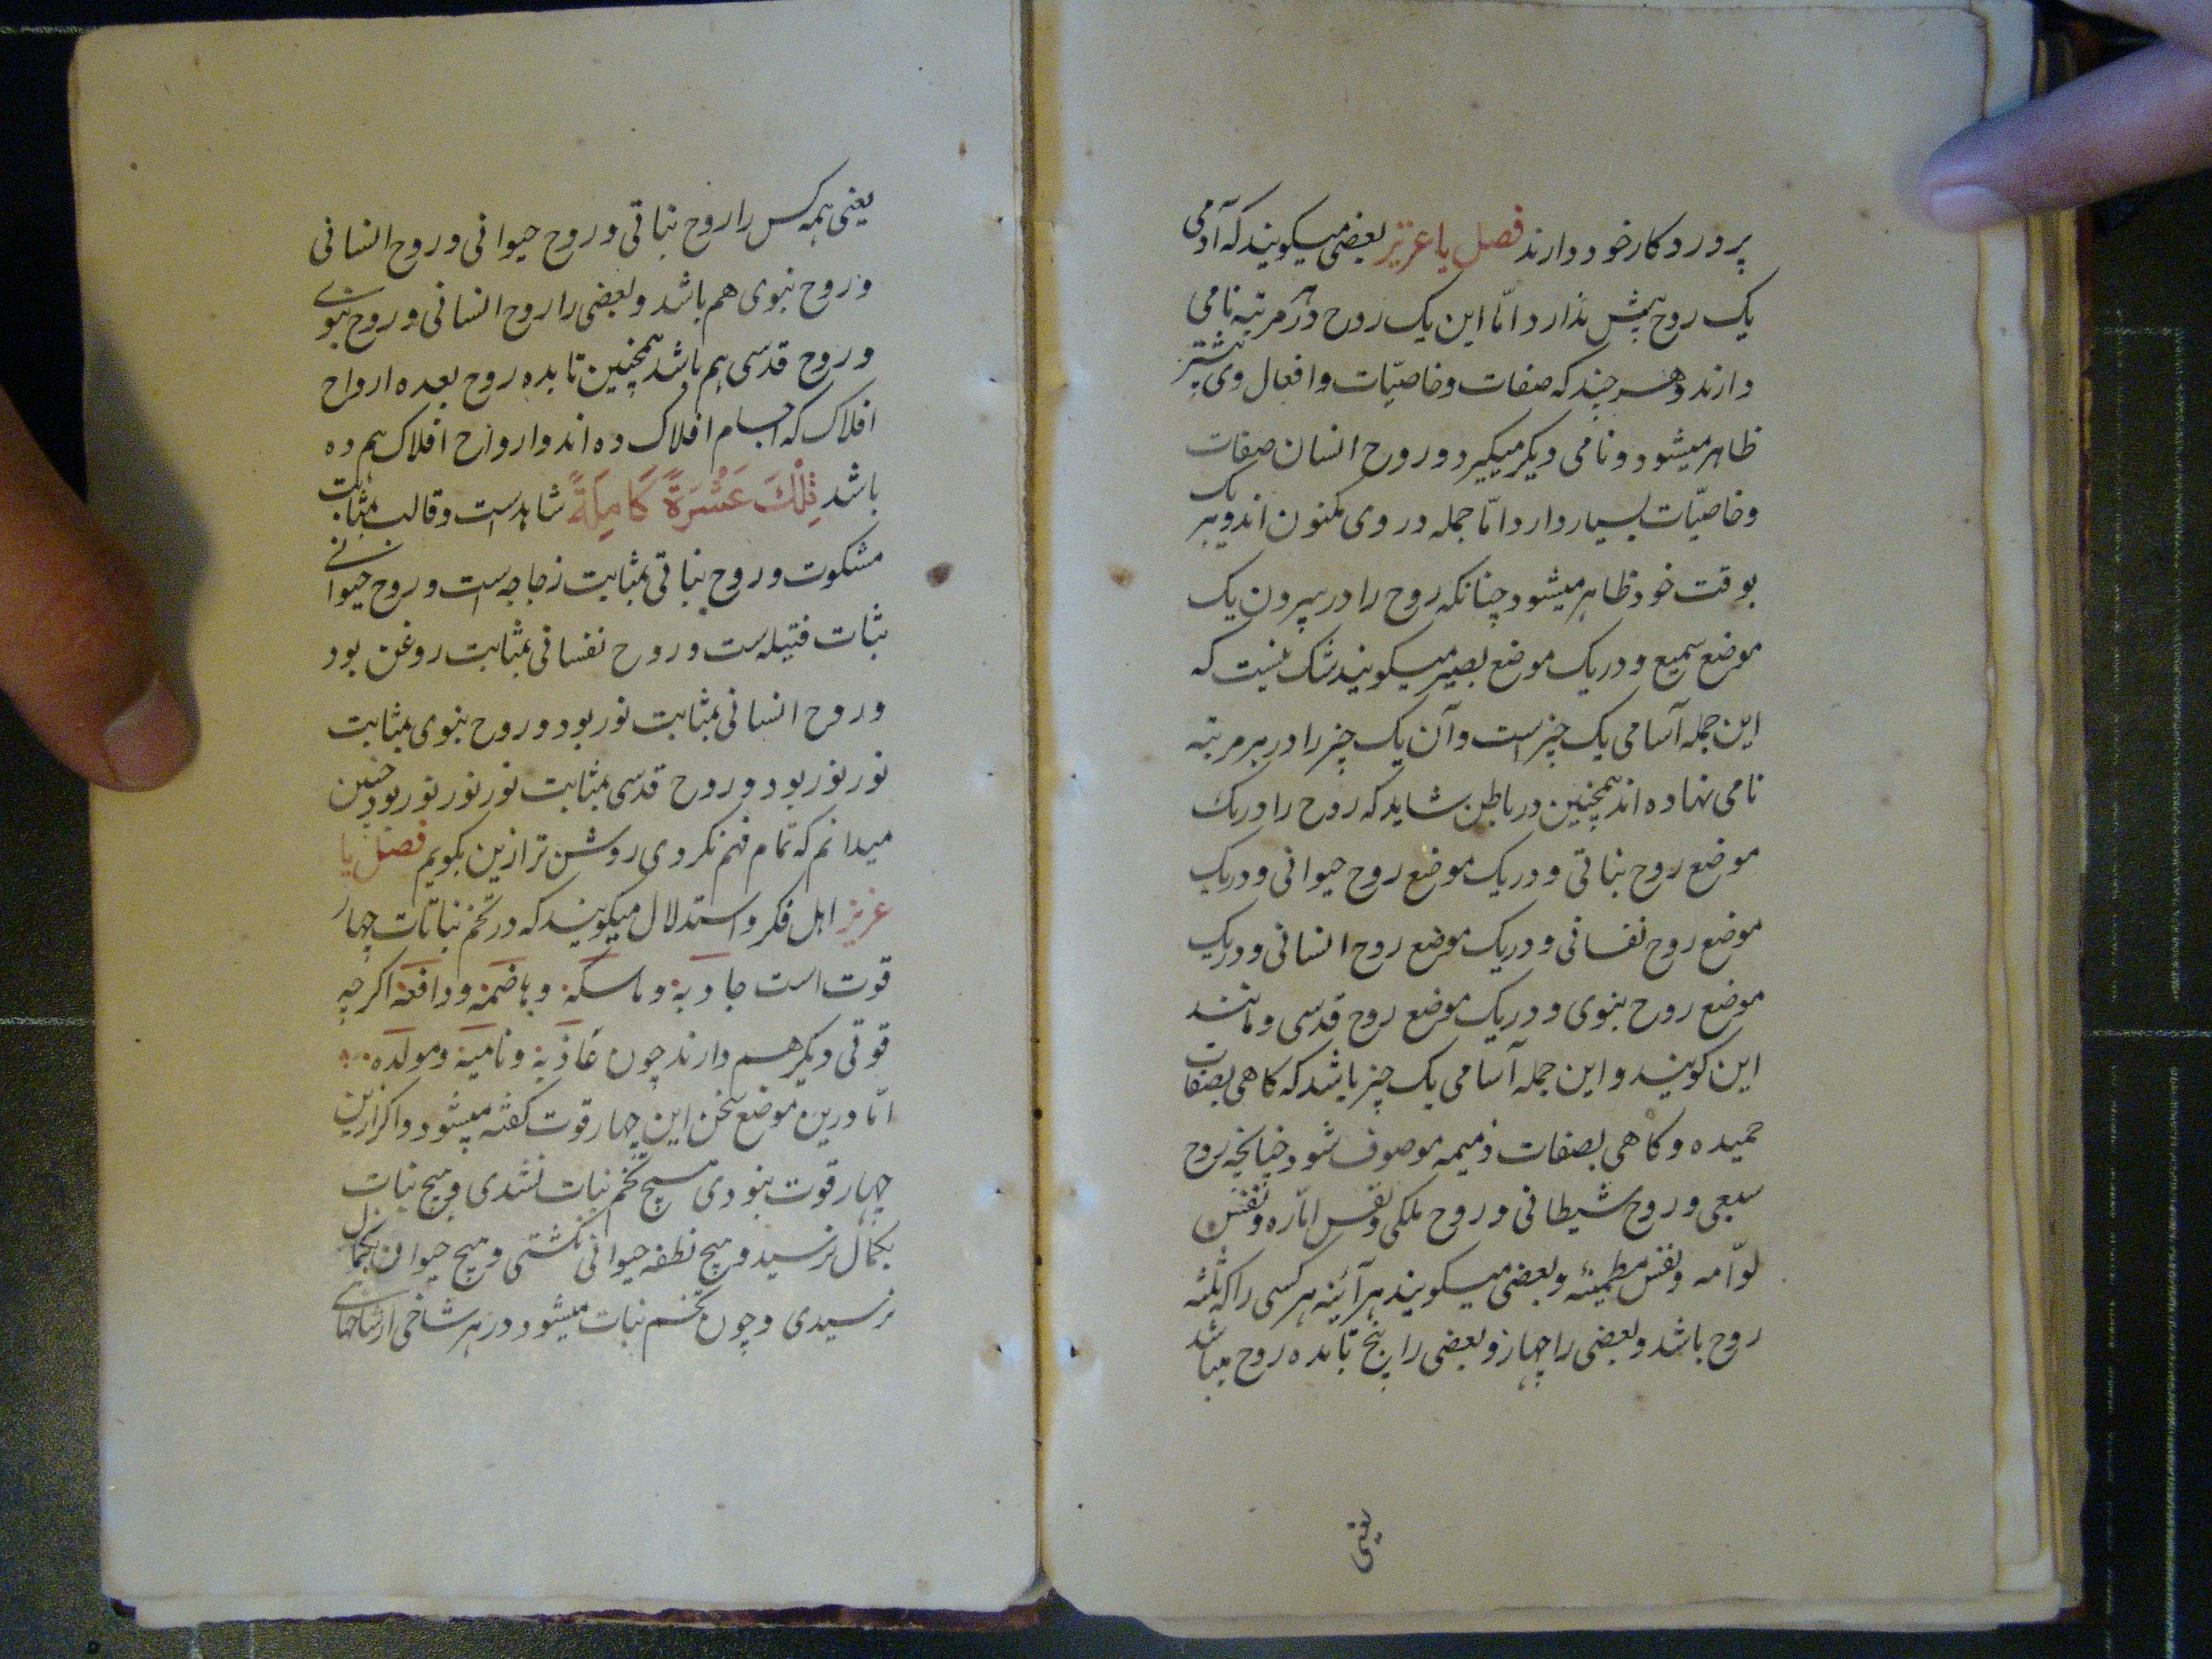 پروردکار خود دارند فصل یا عزیز بعضی میکویند که آدمی
یک روح بیش ندارد امّا این یک روح در هر مرتبه نامی
دارند و هر چند که صفات و خاصیّات و افعال وی بیشتر
ظاهر میشود و نامی دیکر میکیرد و روح انسان صفات
و خاصیّات بسیار دارد امّا جمله در وی مکنون اند و هر یک
بوقت خود ظاهر میشود چنانکه روح را در بیرون یک
موضع سمیع و در یک موضع بصیر میکویند شک نیست که
این جمله آسامی یک چیز است و آن یک چیز را در هر مرتبه
نامی نهاده اند همچنین در باطن شاید که روح را در یک
موضع روح نباتی و در یک موضع روح حیوانی و در یک
موضع روح نفسانی و در یک موضع روح انسانی و در یک
موضع روح نبوی و در یک موضع روح قدسی و مانند
این کویند و این جمله آسامی یک چیز باشد که کاهی بصفات
حمیده و کاهی بصفات ذمیمه موصوف شود چنانچه روح
سبعی و روح شیطانی و روح ملکی و نفس امّاره و نفس
لوّامه و نفس مطمئنه و بعضی میکویند هر آئینه هر کسی را که ثلثه
روح باشد و بعضی را چهار و بعضی را پنج تا بده روح میباشد
یعنی
یعنی همه کس را روح نباتی و روح حیوانی و روح انسانی
و روح نبوی هم باشد و بعضی را روح انسانی و روح نبوی
و روح قدسی هم باشد همچنین تا بده روح بعده ارواح
افلاک که اجسام افلاک ده اند و ارواح افلاک هم ده
باشد تِلْكَ عَشَرَةٌ كَامِلَةٌ شاهدست و قالب بمثابت
مشکوت و روح نباتی بمثابت زجاجه است و روح حیوانی
بثابت فتیله ست و روح نفسانی بمثابت روغن بود
و روح انسانی بمثابت نور بود و روح نبوی بمثابت
نور نور بود و روح قدسی بمثابت نور نور نور بود چنین
میدانم که تمام فهم نکردی روشن تر ازین بکویم فصل یا
عزیز اهل فکر و استدلال میکویند که در تخم نباتات چهار
قوت است جاذبه و ماسکه و هاضمه و دافعه اکرچه
قوتی دیکر هم دارند چون غاذیه و نامیه و مولده
امّا درین موضع سخن این چهار قوت کفته میشود و اکر این
چهار قوت نبودی هیچ تخم نبات نشدی و هیچ نبات
بکمال نرسید و هیچ نطفه حیوانی نکشتی و هیچ حیوان بکمال
نرسیدی و چون تخم نبات میشود در هر شاخی از شاخهای